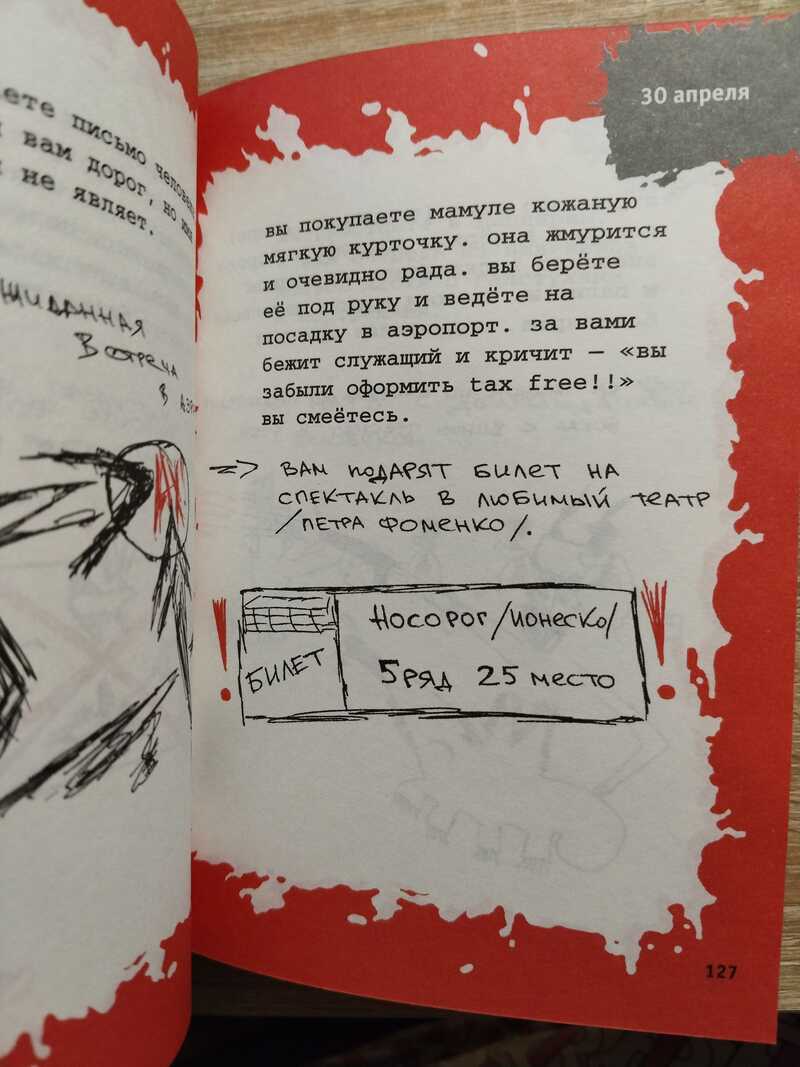 письмо
вам дорог, но
не являет.
Встреча
в
30 апреля
вы покупаете мамуле кожаную
мягкую курточку. она жмурится
и очевидно рада. вы берёте
её под руку и ведёте на
посадку в аэропорт. за вами
бежит служащий и кричит — «вы
забыли оформить tax free!!»
вы смеётесь.
=> ВАМ ПОДАРЯТ БИЛЕТ НА
СПЕКТАКЛЬ В ЛЮБИМЫЙ ТЕАТР
/ПЕТРА ФОМЕНКО/.
БИЛЕТ
НОСОРОГ/ИОНЕСКО/
5 РЯД 25 МЕСТО
127